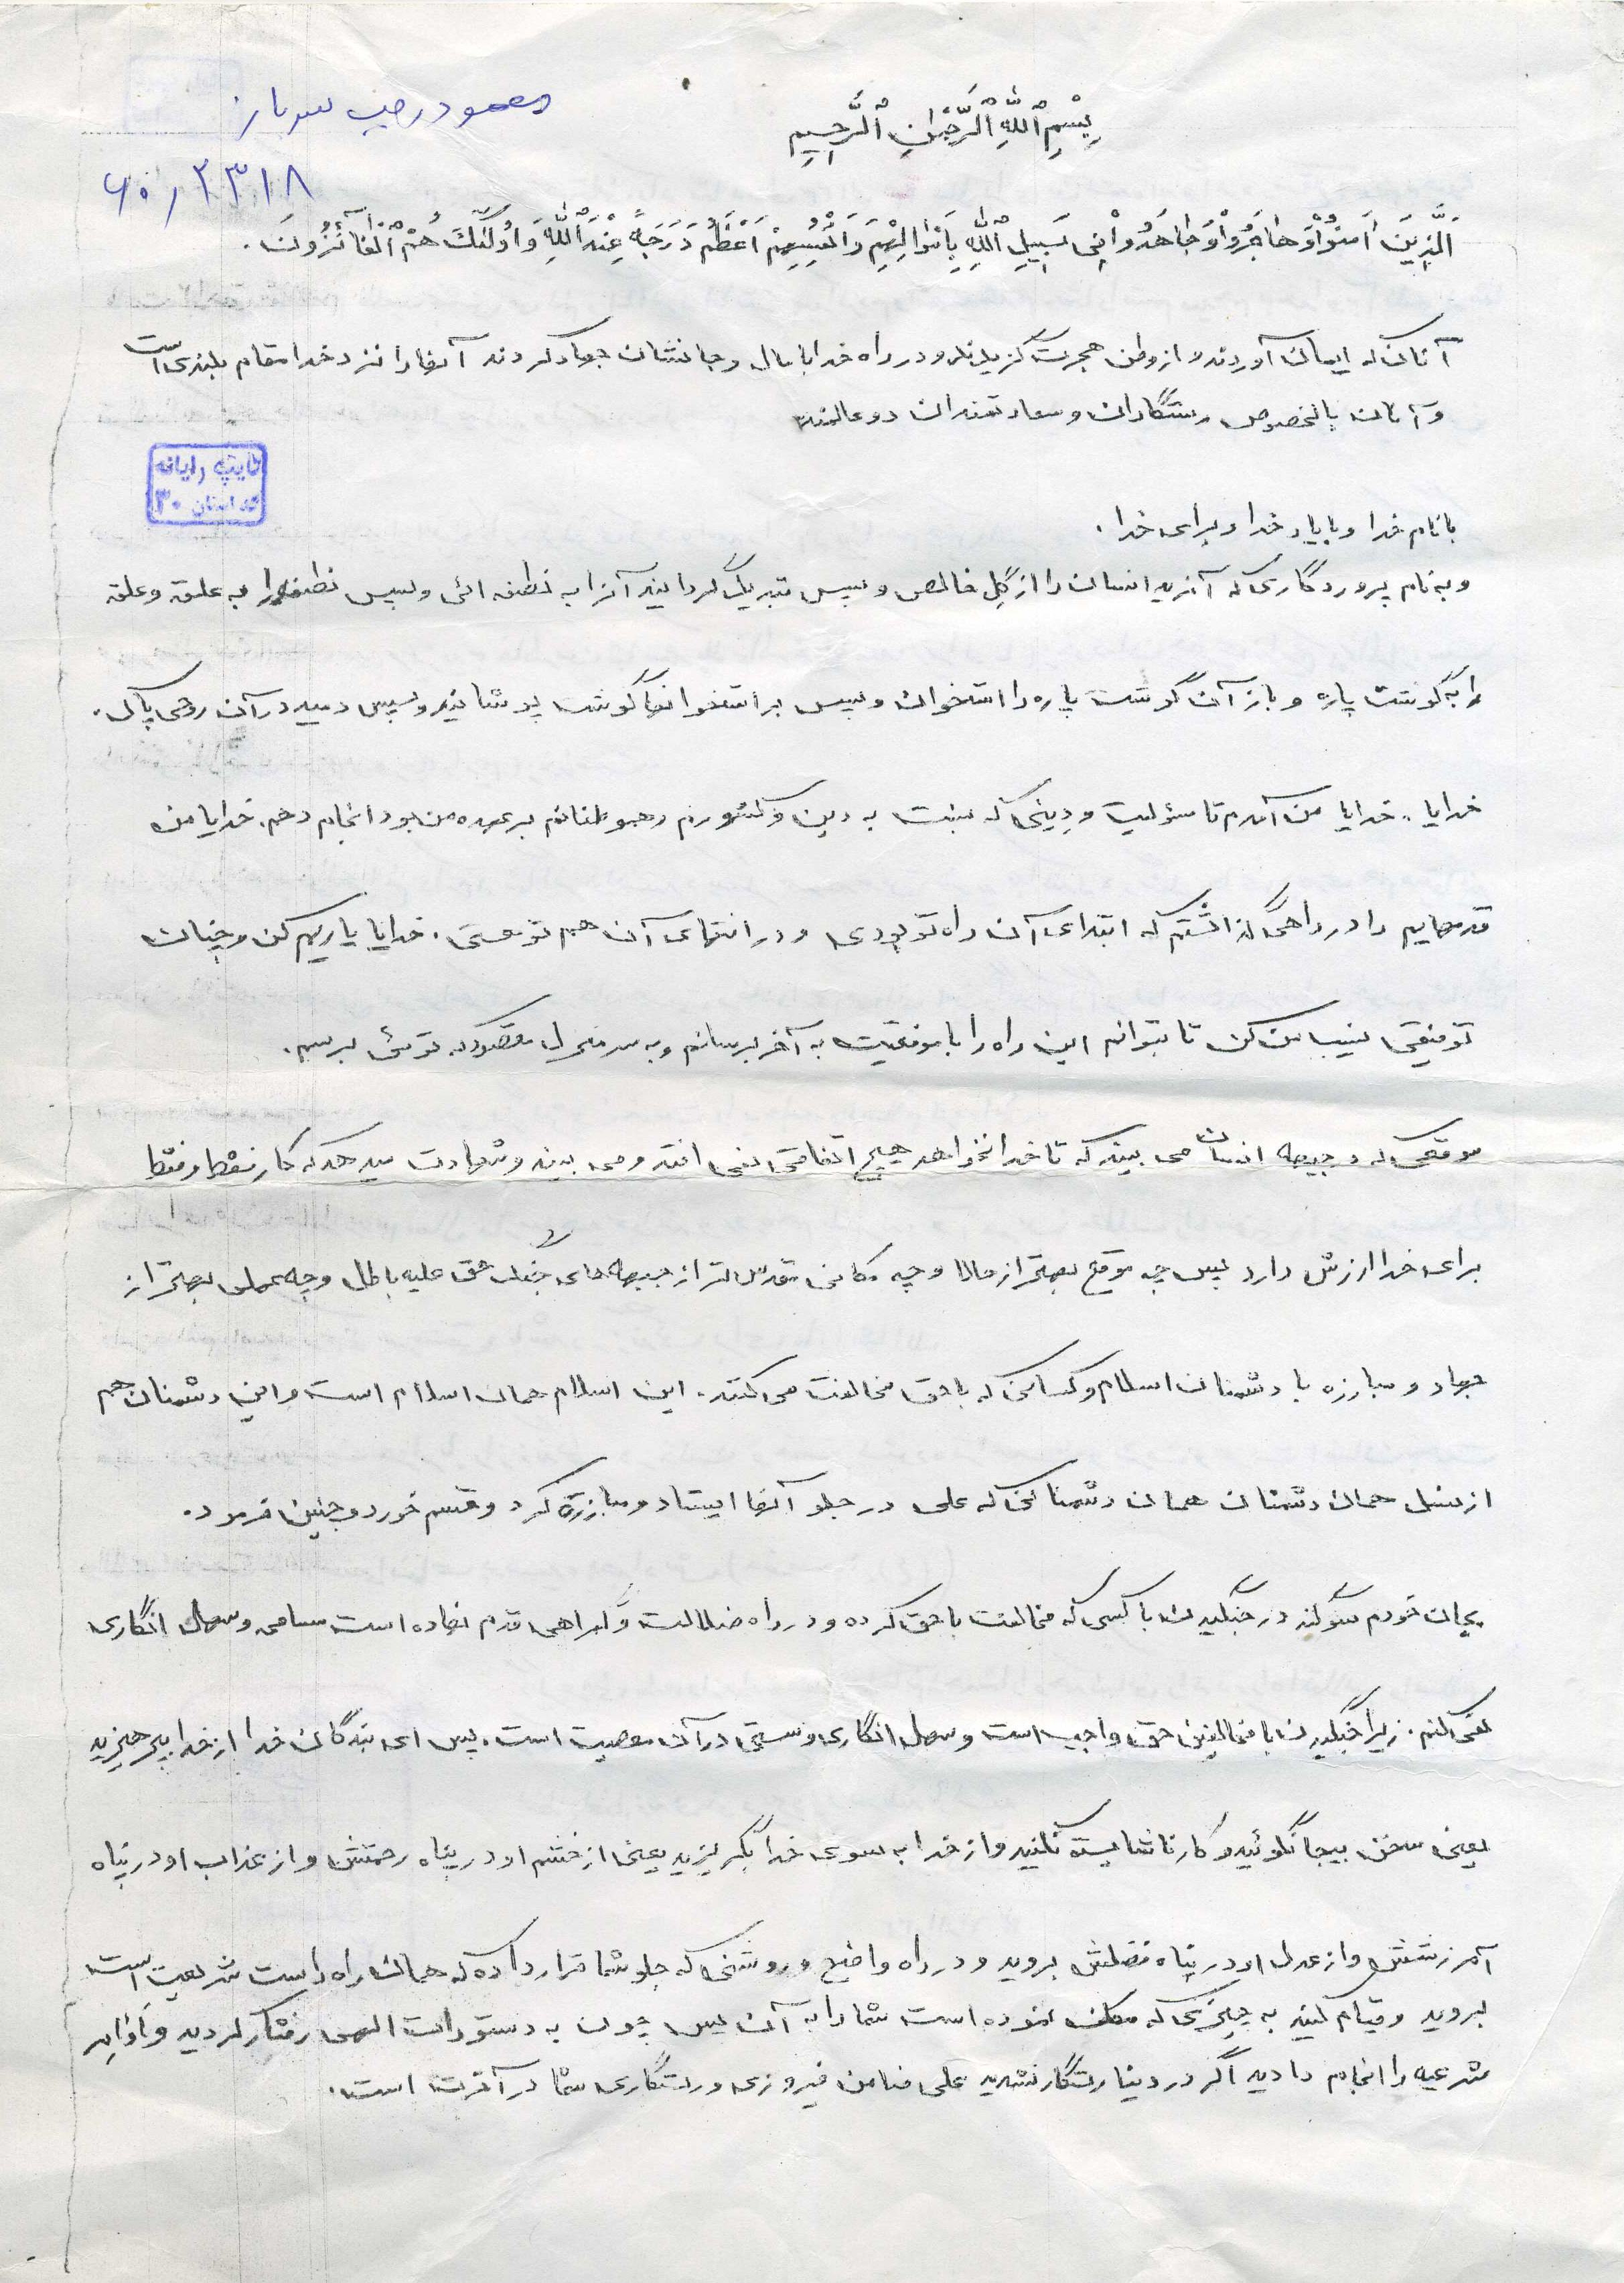 بِسْمِ ٱللّٰهِ ٱلرَّحْمٰنِ ٱلرَّحِيمِ
سرباز
۶۰۱۲۳۱۸
اَلَّذِينَ اٰمَنُوْا وَهاجَرُوْا وَجاهَدُوْا فِى سَبِيلِ ٱللّٰهِ بِاَمْوالِهِمْ وَاَنْفُسِهِمْ اَعْظَمُ دَرَجَةً عِنْدَ ٱللّٰهِ وَاُولٰئِكَ هُمُ ٱلْفائِزُونَ .
آنانکه ایمان آوردند و از وطن هجرت گزیدند و در راه خدا با مال و جانشان جهاد کردند آنها را نزد خدا مقام بلندی است
و آنان بالخصوص رستگاران و سعادتمندان دو عالمند
تایپ رایانه
کد استان ۳۰
بانام خدا و با یاد خدا و برای خدا .
و به نام پروردگاری که آفرید انسان را از گِل خالص و سپس تبدیل گردانید آنرا به نطفه ائی و سپس نطفه را به علقه و علقه
را به گوشت پاره و باز آن گوشت پاره را استخوان و سپس بر استخوانها گوشت پوشانید و سپس دمید در آن روحی پاک .
خدایا . خدایا من آمدم تا مسئولیت و دِینی که نسبت به دین و کشورم و هموطنانم بر عهده من بود انجام دهم. خدایا من
قدمهایم را در راهی گذاشتم که ابتدای آن راه تو بودی و در انتهای آن هم تو هستی . خدایا یاریم کن و چنان
توفیقی نصیب من کن تا بتوانم این راه را با موفقیت به آخر برسانم و به سر منزل مقصود که توئی برسم.
موقعی که در جبهه انسان می بیند که تا خدا نخواهد هیچ اتفاقی نمی افتد و می بیند و شهادت میدهد که کار فقط و فقط
برای خدا ارزش دارد پس چه موقع بهتر از حالا و چه مکانی مقدس تر از جبهه های جنگ حق علیه باطل و چه عملی بهتر از
جهاد و مبارزه با دشمنان اسلام و کسانی که با حق مخالفت می کنند. این اسلام همان اسلام است و این دشمنان هم
از نسل همان دشمنان همان دشمنانی که علی در جلو آنها ایستاد و مبارزه کرد و قسم خورد و چنین فرمود.
بجان خودم سوگند در جنگیدن با کسی که مخالفت با حق کرده و در راه ضلالت و گمراهی قدم نهاده است سستی و سهل انگاری
نمی کنم . زیرا جنگیدن با مخالفین حق واجب است و سهل انگاری و سستی در آن معصیت است. پس ای بندگان خدا از خدا بپرهیزید
یعنی سخن بیجا نگوئید و کار ناشایسته نکنید و از خدا به سوی خدا بگریزید یعنی از خشم او در پناه رحمتش و از عذاب او در پناه
آمرزشش و از عدل او در پناه فضلش بروید و در راه واضح و روشنی که جلو شما قرار داده که همان راه راست شریعت است
بروید و قیام کنید به چیزی که مکلف نموده است شما را به آن پس چون به دستورات الهی رفتار کردید و اوامر
شرعیه را انجام دادید اگر در دنیا رستگار نشدید علی ضامن فیروزی و رستگاری شما در آخرت است .